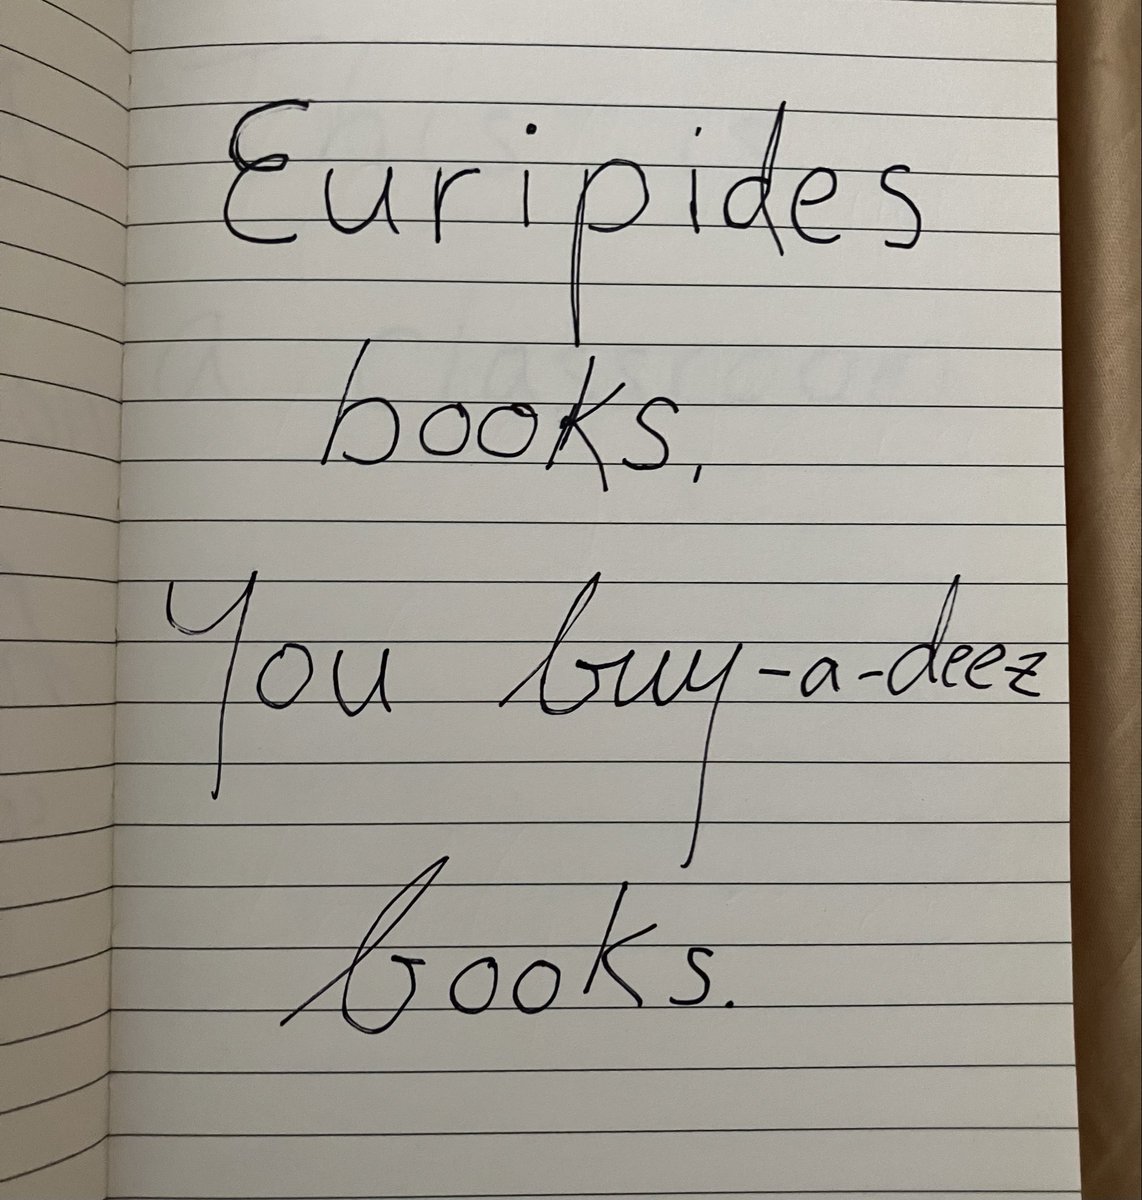 Euripides
books,
You buy-a-deez
books.